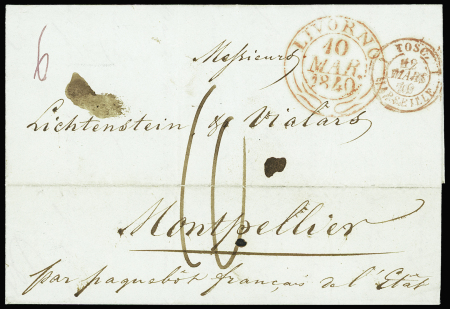 6
LIVORNO
10
MAR.
1840
TOSC.
MARS
40
MARSEILLE
Messieurs
Lichtenstein & Vialars
10
Montpellier
par paquebôt français de l'Etat